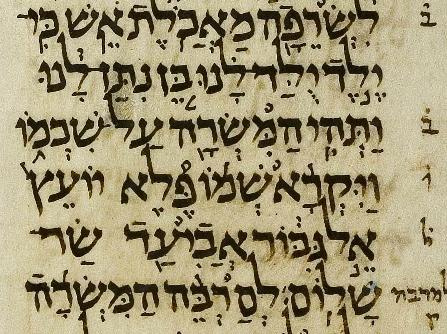 לִשְׂרֵפָה מַאֲכֹלֶת אֵשׁ כִּי ב
יֶלֶד יֻלַּד לָנוּ בֵּן נִתַּן לָנוּ
וַתְּהִי הַמִּשְׂרָה עַל־שִׁכְמוֹ ב
וַיִּקְרָא שְׁמוֹ פֶּלֶא יוֹעֵץ
אֵל גִּבּוֹר אֲבִיעַד שַׂר ל
שָׁלוֹם׃ לםַרְבֵּה הַמִּשְׂרָה למרבה
ק